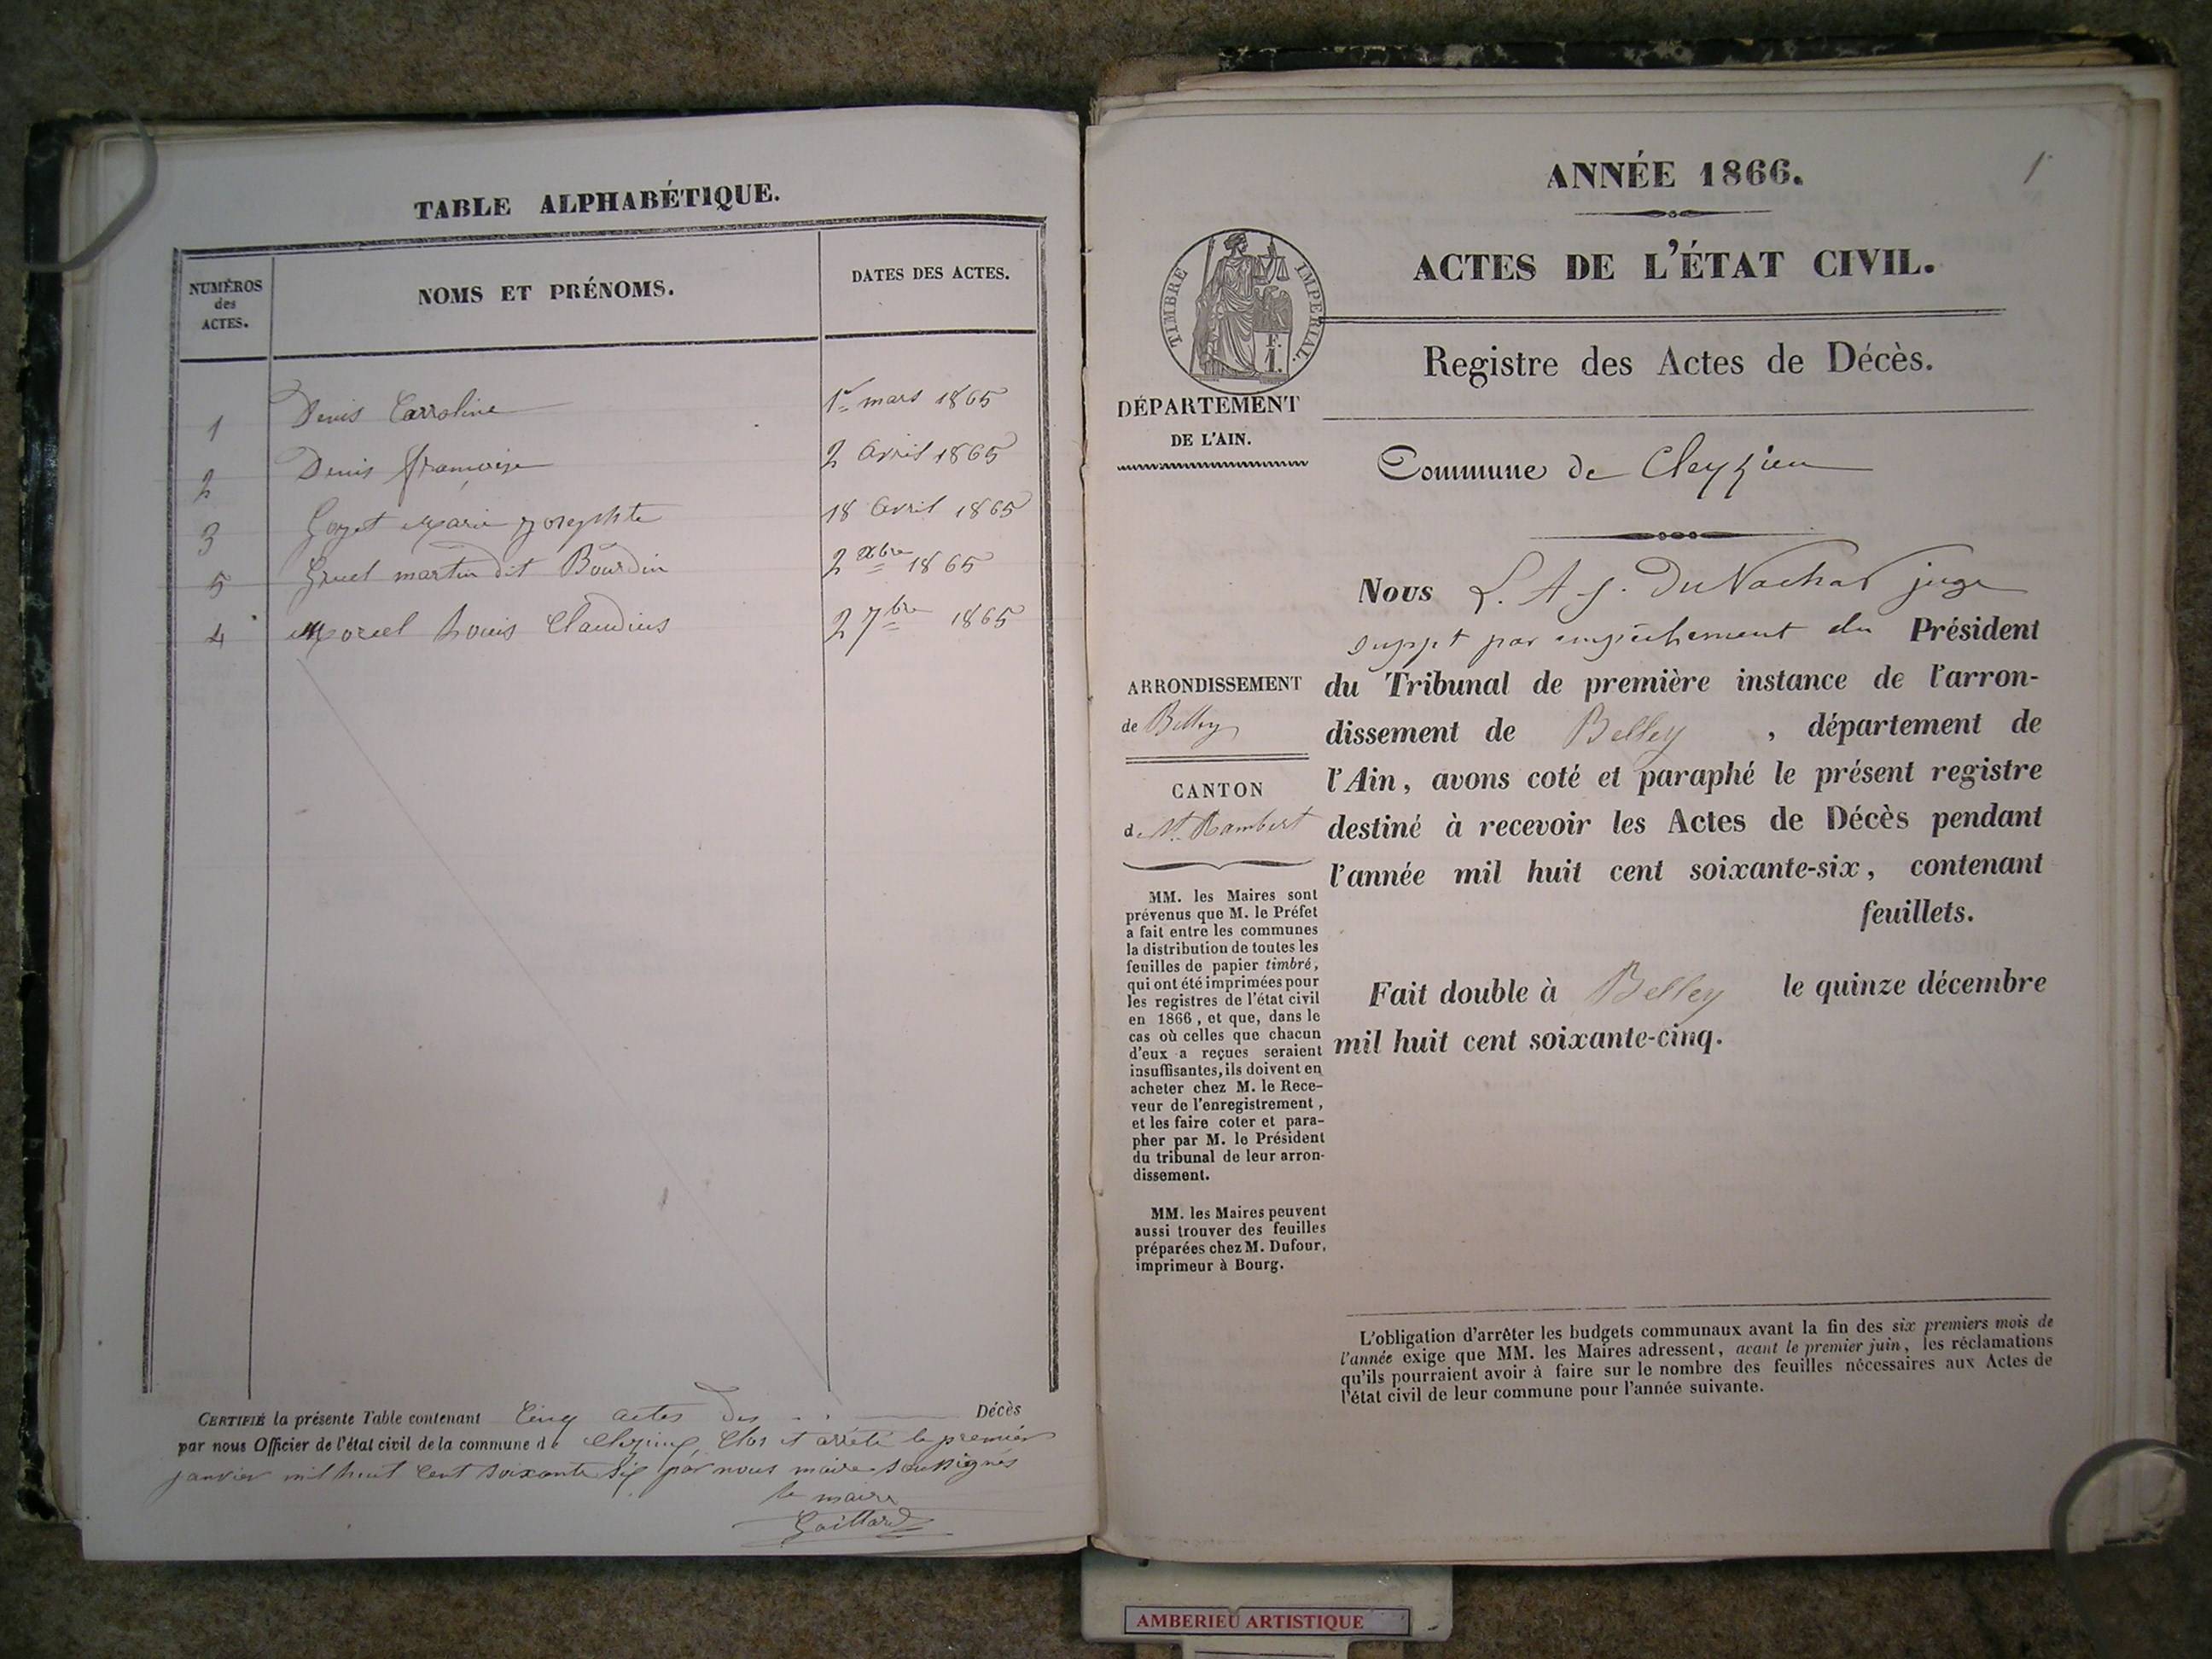 TABLE ALPHABÉTIQUE.
NUMÉROS
des
ACTES.
NOMS ET PRÉNOMS.
DATES DES ACTES.
1 Denis Carroline 1er mars 1865
2 Denis françoise 2 avril 1865
3 Goyet Marie josephte 18 avril 1865
5 Gruel martin dit Bourdin 2 xbre 1865
4 Morcel Louis Claudius 2 7bre 1865
CERTIFIÉ la présente Table contenant Cinq actes des Décès
par nous Officier de l'état civil de la commune de Cleyzieu, Clos et arrêté le premier
janvier mil huit cent soixante six par nous maire soussignés
le maire
Gaillard
ANNÉE 1866.
1
ACTES DE L'ÉTAT CIVIL.
TIMBRE IMPÉRIAL.
F.
1.
Registre des Actes de Décès.
DÉPARTEMENT
DE L'AIN.
Commune de Cleyzieu
Nous L. A. J. juge
suppt par empêchement du Président
du Tribunal de première instance de l'arron-
dissement de Belley, département de
l'Ain, avons coté et paraphé le présent registre
destiné à recevoir les Actes de Décès pendant
l'année mil huit cent soixante-six, contenant
feuillets.
Fait double à Belley le quinze décembre
mil huit cent soixante-cinq.
ARRONDISSEMENT
de Belley
CANTON
de St. Rambert
MM. les Maires sont
prévenus que M. le Préfet
a fait entre les communes
la distribution de toutes les
feuilles de papier timbré,
qui ont été imprimées pour
les registres de l'état civil
en 1866, et que, dans le
cas où celles que chacun
d'eux a reçues seraient
insuffisantes, ils doivent en
acheter chez M. le Rece-
veur de l'enregistrement,
et les faire coter et para-
pher par M. le Président
du tribunal de leur arron-
dissement.
MM. les Maires peuvent
aussi trouver des feuilles
préparées chez M. Dufour,
imprimeur à Bourg.
L'obligation d'arrêter les budgets communaux avant la fin des six premiers mois de
l'année exige que MM. les Maires adressent, avant le premier juin, les réclamations
qu'ils pourraient avoir à faire sur le nombre des feuilles nécessaires aux Actes de
l'état civil de leur commune pour l'année suivante.
AMBERIEU ARTISTIQUE